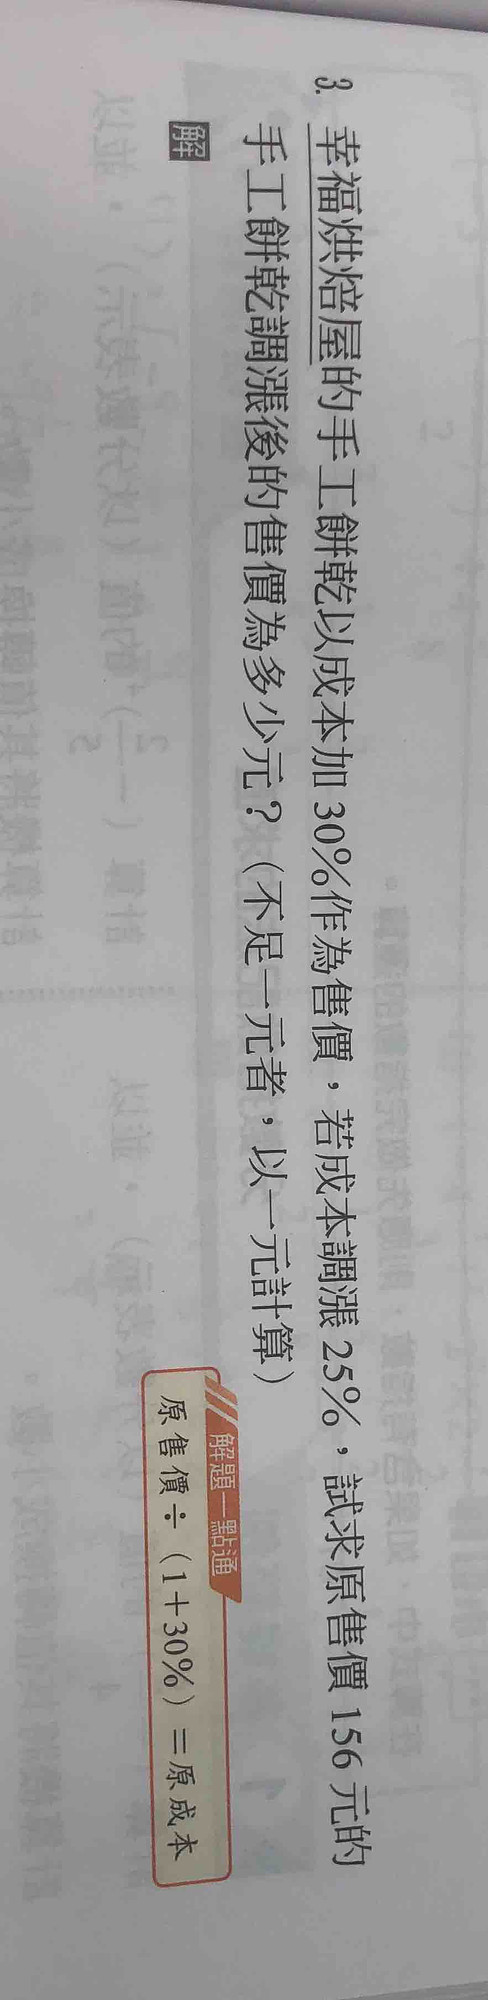 3. 幸福烘焙屋的手工餅乾以成本加30%作為售價，若成本調漲25%，試求原售價156元的
手工餅乾調漲後的售價為多少元？（不足一元者，以一元計算）
解
解題一點通
原售價÷（1＋30%）＝原成本